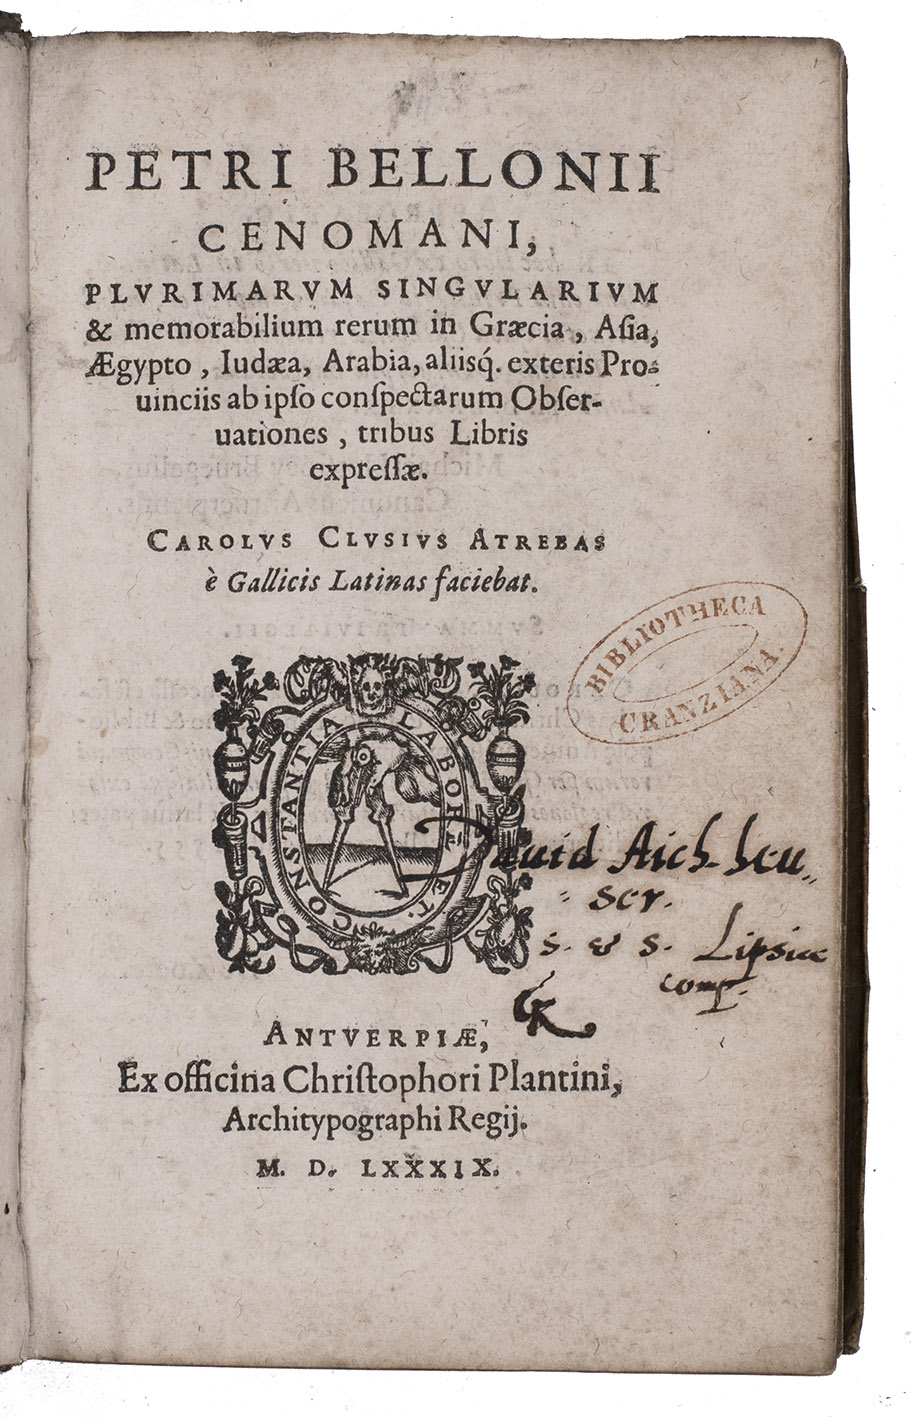 PETRI BELLONII
CENOMANI,
PLVRIMARVM SINGVLARIVM
& memorabilium rerum in Græcia, Aſia,
Ægypto, Iudæa, Arabia, aliisq́. exteris Pro-
uinciis ab ipſo conſpectarum Obſer-
uationes, tribus Libris
expreſſæ.
CAROLVS CLVSIVS ATREBAS
è Gallicis Latinas faciebat.
BIBLIOTHECA
CRANZIANA.
CONSTANTIA LABORE ET
Dauid Aich-heu„
ser.
s. & s. Lipsiæ
comp.
ANTVERPIÆ,
Ex officina Chriſtophori Plantini,
Architypographi Regij.
M. D. LXXXIX.